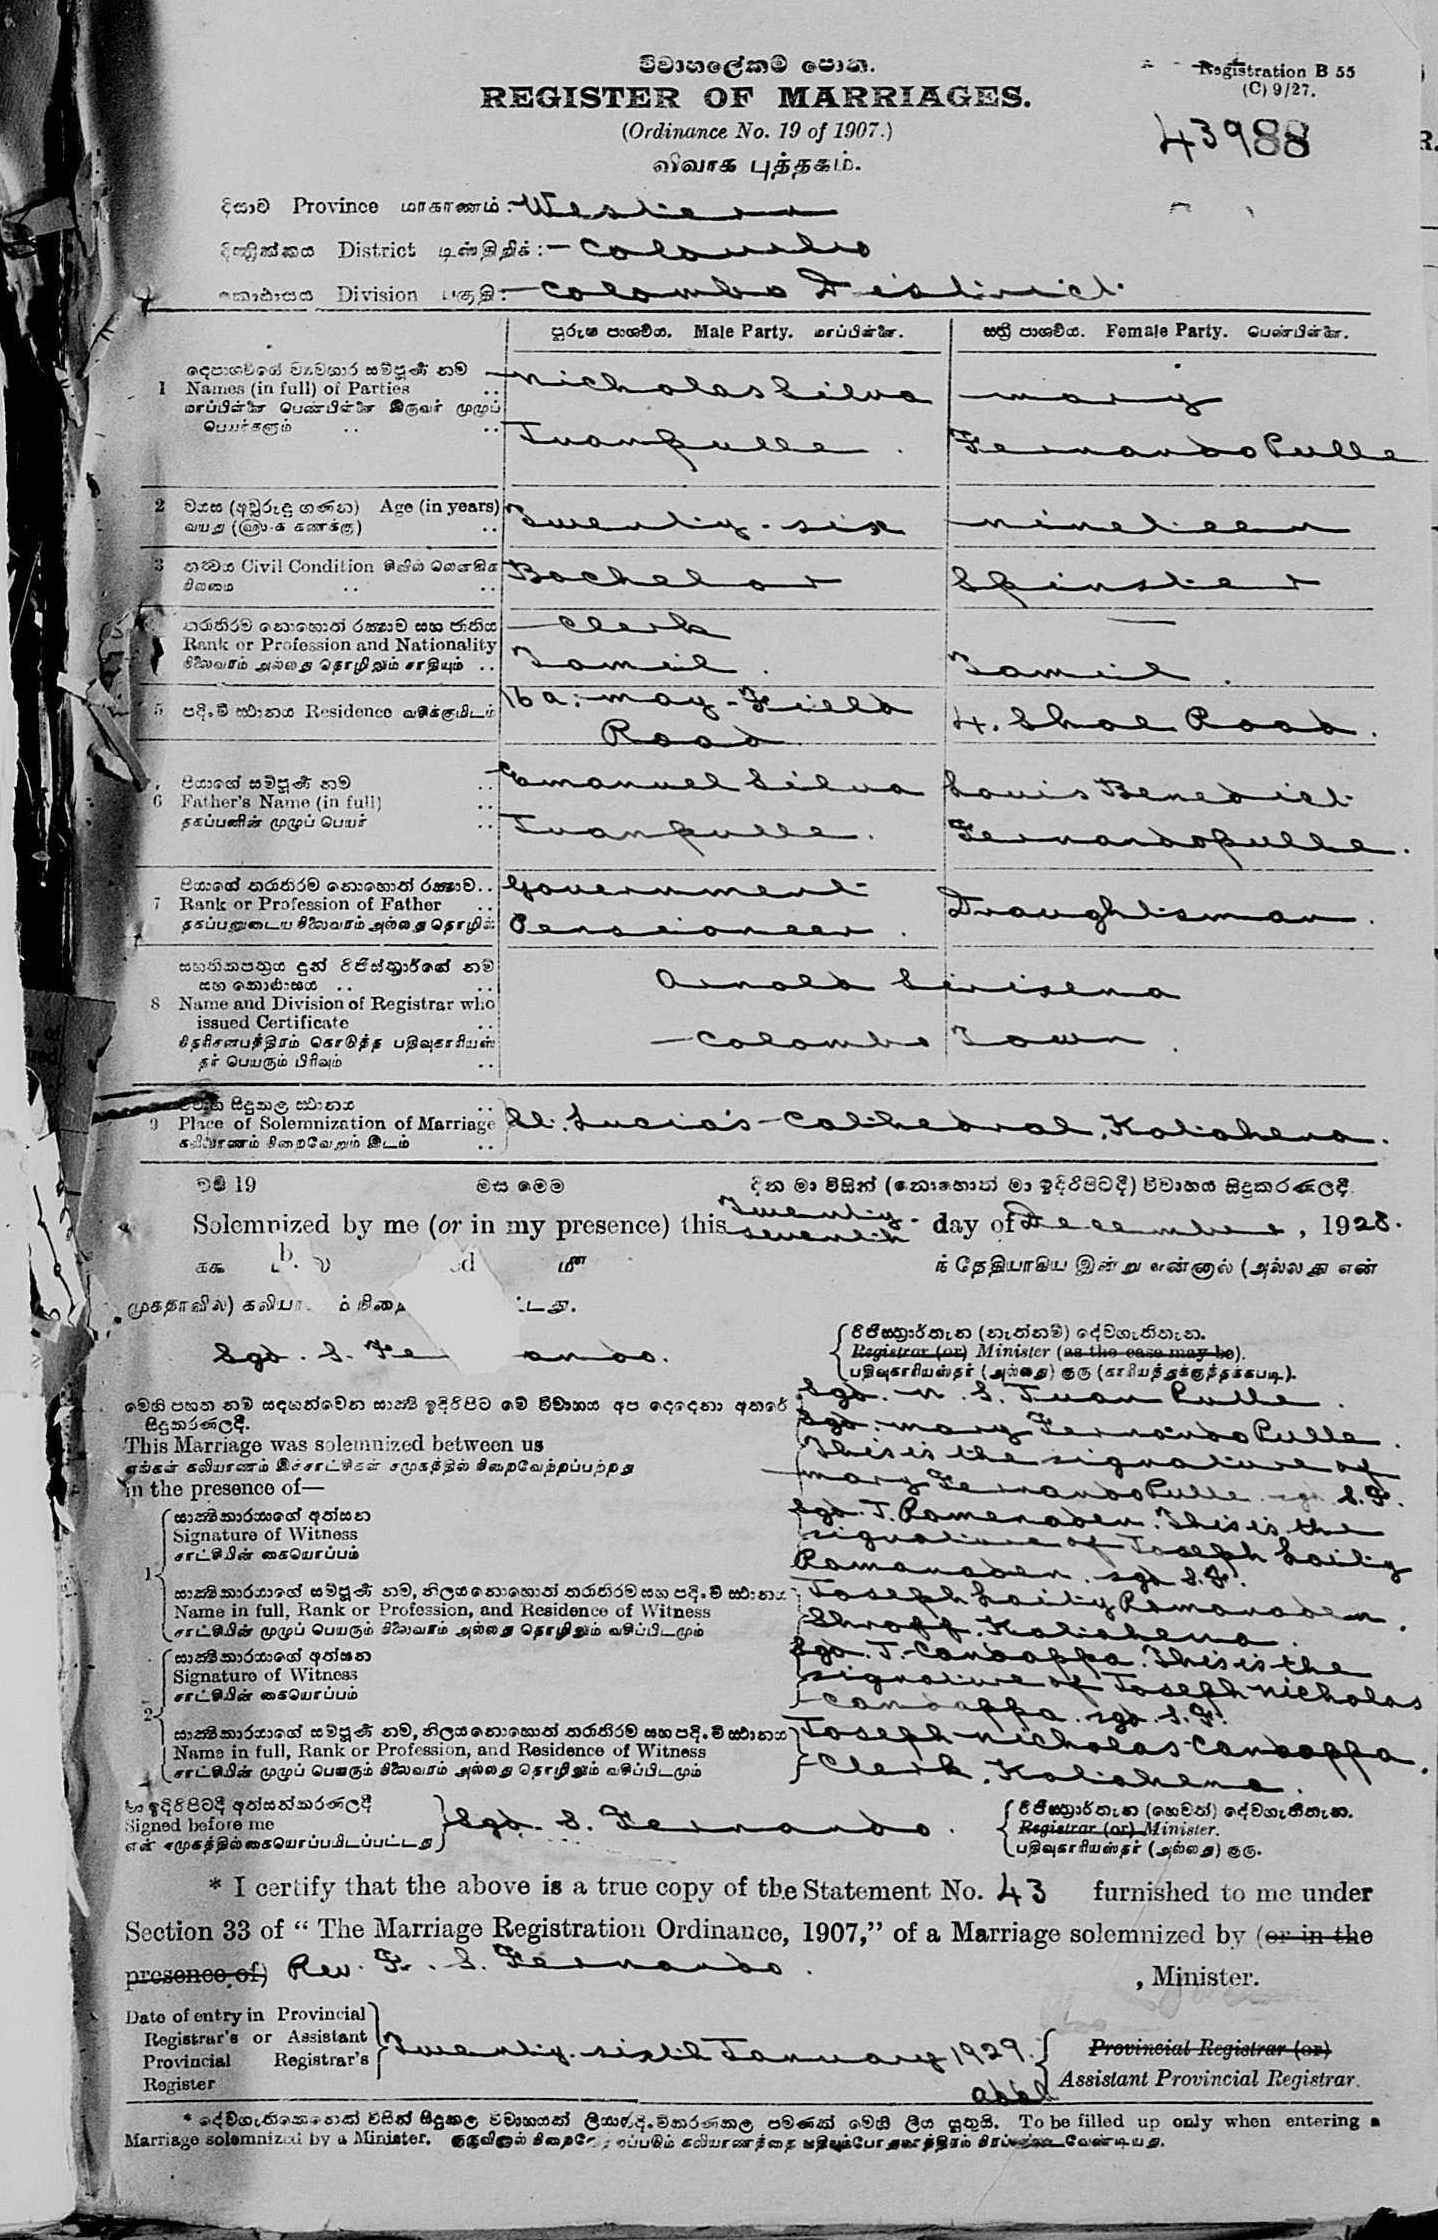 විවාහලේකම් පොත.
Registration B 55
(C) 9/27.
REGISTER OF MARRIAGES.
(Ordinance No. 19 of 1907.)
43988
விவாக புத்தகம்.
දිසාව Province மாகாணம்:- Western
දිස්ත්‍රික්කය District டிஸ்திறிக்:- Colombo
කොඨාසය Division பகுதி:- Colombo District
පුරුෂ පාශවීය. Male Party. மாப்பிள்ளை.
ස්ත්‍රී පාශවීය. Female Party. பெண்பிள்ளை.
දෙපාශවීයේ ව්‍යවහාර සම්පූර්ණ නම
1 Names (in full) of Parties ..
மாப்பிள்ளை பெண்பிள்ளை இருவர் முழுப்
பெயர்களும் .. ..
Nicholas Silva
Juanpulle.
Mary
Fernando Pulle
2 වයස (අවුරුදු ගණන) Age (in years)
வயது (கணக்கு) ..
Twenty-six
Nineteen
3 තත්වය Civil Condition சிவில் லௌகிக
நிலைமை .. ..
Bachelor
Spinster
තරාතිරම නොහොත් රක්‍ෂාව සහ ජාතිය
Rank or Profession and Nationality
நிலைவரம் அல்லது தொழிலும் சாதியும் ..
Clerk
Tamil.
—
Tamil.
5 පදිංචි ස්ථානය Residence வசிக்குமிடம்
16a: May-Field
Road
4. Shoe Road.
පියාගේ සම්පූර්ණ නම ..
6 Father's Name (in full) ..
தகப்பனின் முழுப் பெயர் ..
Emanuel Silva
Juanpulle.
Louis Benedict
Fernandopulle.
පියාගේ තරාතිරම නොහොත් රක්‍ෂාව ..
7 Rank or Profession of Father ..
தகப்பனுடைய நிலைவரம் அல்லது தொழில்
Government
Pensioneer.
Draughtsman.
සහතිකපත්‍රය දුන් රෙජිස්ත්‍රාර්ගේ නම
සහ කොඨාසය .. ..
8 Name and Division of Registrar who
issued Certificate ..
தர் பெயரும் பிரிவும் ..
Arnold Sirisena
Colombo Town.
විවාහ සිදුකල ස්ථානය ..
9 Place of Solemnization of Marriage
கலியாணம் நிறைவேறும் இடம் ..
St. Lucia's Cathedral, Kotahena.
වර්‍ෂ 19 මස මෙම දින මා විසින් (නොහොත් මා ඉදිරිපිටදී) විවාහය සිදුකරණලදී
Solemnized by me (or in my presence) this Twenty-seventh day of December, 1928.
ந் தேதியாகிய இன்று என்னால் (அல்லது என்
முகதாவில்)
Sgd. S. Fe ando.
රෙජිස්ත්‍රාර්තැන (නැත්නම්) දේවගැතිතැන.
Registrar (or) Minister (as the case may be).
பதிவுகாரியஸ்தர் (அல்லது) குரு (காரியத்துக்குத்தக்கபடி).
මෙහි පහත නම් සඳහන්වෙන සාක්‍ෂි ඉදිරිපිට මේ විවාහය අප දෙදෙනා අතරේ
සිදුකරණලදී.
This Marriage was solemnized between us
எங்கள் கலியாணம் இச்சாட்சிகள் சமுகத்தில் நிறைவேற்றப்பற்றது
in the presence of—
Sgd. N. S. Juan Pulle.
Sgd. Mary Fernando Pulle.
This is the signature of
Mary Fernando Pulle. sgd S.F.
සාක්‍ෂිකාරයාගේ අත්සන
Signature of Witness
சாட்சியின் கையொப்பம்
1
Sgd. J. Ramenaden. This is the
signature of Joseph Laity
Ramanaden. sgd S.F.
සාක්‍ෂිකාරයාගේ සම්පූර්ණ නම, නිලය නොහොත් තරාතිරම සහ පදිංචි ස්ථානය
Name in full, Rank or Profession, and Residence of Witness
சாட்சியின் முழுப் பெயரும் நிலைவரம் அல்லது தொழிலும் வசிப்பிடமும்
Joseph Laity Ramanaden.
Shroff. Kotahena.
සාක්‍ෂිකාරයාගේ අත්සන
Signature of Witness
சாட்சியின் கையொப்பம்
2
Sgd. J. Candappa. This is the
signature of Joseph Nicholas
Candappa. sgd. S.F.
සාක්‍ෂිකාරයාගේ සම්පූර්ණ නම, නිලය නොහොත් තරාතිරම සහ පදිංචි ස්ථානය
Name in full, Rank or Profession, and Residence of Witness
சாட்சியின் முழுப் பெயரும் நிலைவரம் அல்லது தொழிலும் வசிப்பிடமும்
Joseph Nicholas Candappa.
Clerk, Kotahena.
මා ඉදිරිපිටදී අත්සන්කරණලදී
Signed before me
என் சமூகத்தில் கையொப்பமிடப்பட்டது
Sgd. S. Fernando.
රෙජිස්ත්‍රාර්තැන (හෙවත්) දේවගැතිතැන.
Registrar (or) Minister.
பதிவுகாரியஸ்தர் (அல்லது) குரு.
* I certify that the above is a true copy of the Statement No. 43 furnished to me under
Section 33 of "The Marriage Registration Ordinance, 1907," of a Marriage solemnized by (or in the
presence of) Rev. Fr. S. Fernando. , Minister.
Date of entry in Provincial
Registrar's or Assistant
Provincial Registrar's
Register
Twenty-sixth January 1929.
Provincial Registrar (or)
Assistant Provincial Registrar.
* දේවගැතිකෙනෙක් විසින් සිදුකල විවාහයක් ලියාපදිංචිකරණකල පමණක් මෙහි ලිය යුතුයි. To be filled up only when entering a
Marriage solemnized by a Minister.